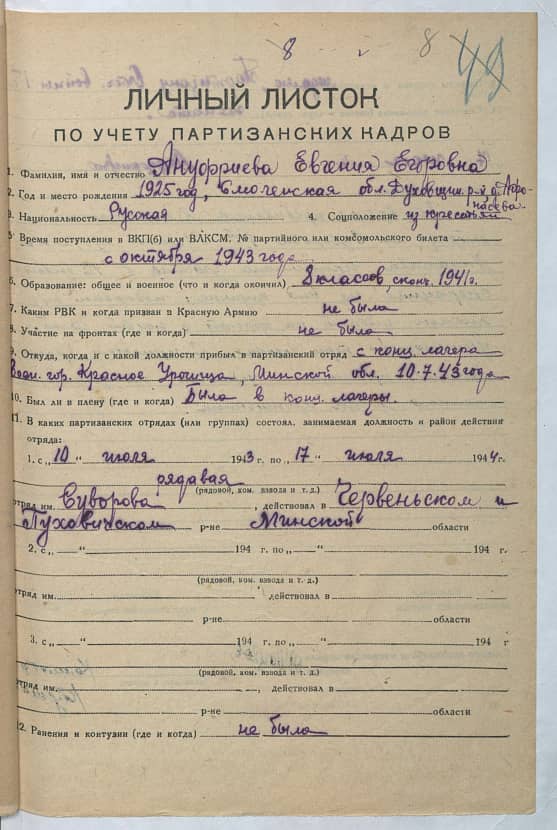 8 8 49
ЛИЧНЫЙ ЛИСТОК
ПО УЧЕТУ ПАРТИЗАНСКИХ КАДРОВ
1. Фамилия, имя и отчество Ануфриева Евгения Егоровна
2. Год и место рождения 1925 год, Смоленская обл. Духовщин. р-н д. Афо-
насьева
3. Национальность Русская 4. Соцположение из крестьян
5. Время поступления в ВКП(б) или ВЛКСМ, № партийного или комсомольского билета
с октября 1943 года
6. Образование: общее и военное (что и когда окончил) 8 классов, оконч. 1941 г.
7. Каким РВК и когда призван в Красную Армию не была
8. Участие на фронтах (где и когда) не была
9. Откуда, когда и с какой должности прибыл в партизанский отряд с конц. лагера
гор. Красное Урочища, Минской обл. 10.7.43 года
10. Был ли в плену (где и когда) Была в конц. лагеры.
11. В каких партизанских отрядах (или группах) состоял, занимаемая должность и район действия
отряда:
1. с „10“ июля 1943 г. по „17“ июля 1944 г.
рядавая
(рядовой, ком. взвода и т. д.)
отряд им. Суворова, действовал в Червеньском и
Пуховичском р-не Минской области
2. с „ “ 194 г. по „ “ 194 г.
(рядовой, ком. взвода и т. д.)
отряд им. , действовал в
р-не области
3. с „ “ 194 г. по „ “ 194 г
(рядовой, ком. взвода и т. д.)
отряд им. , действовал в
р-не области
12. Ранения и контузии (где и когда) не была